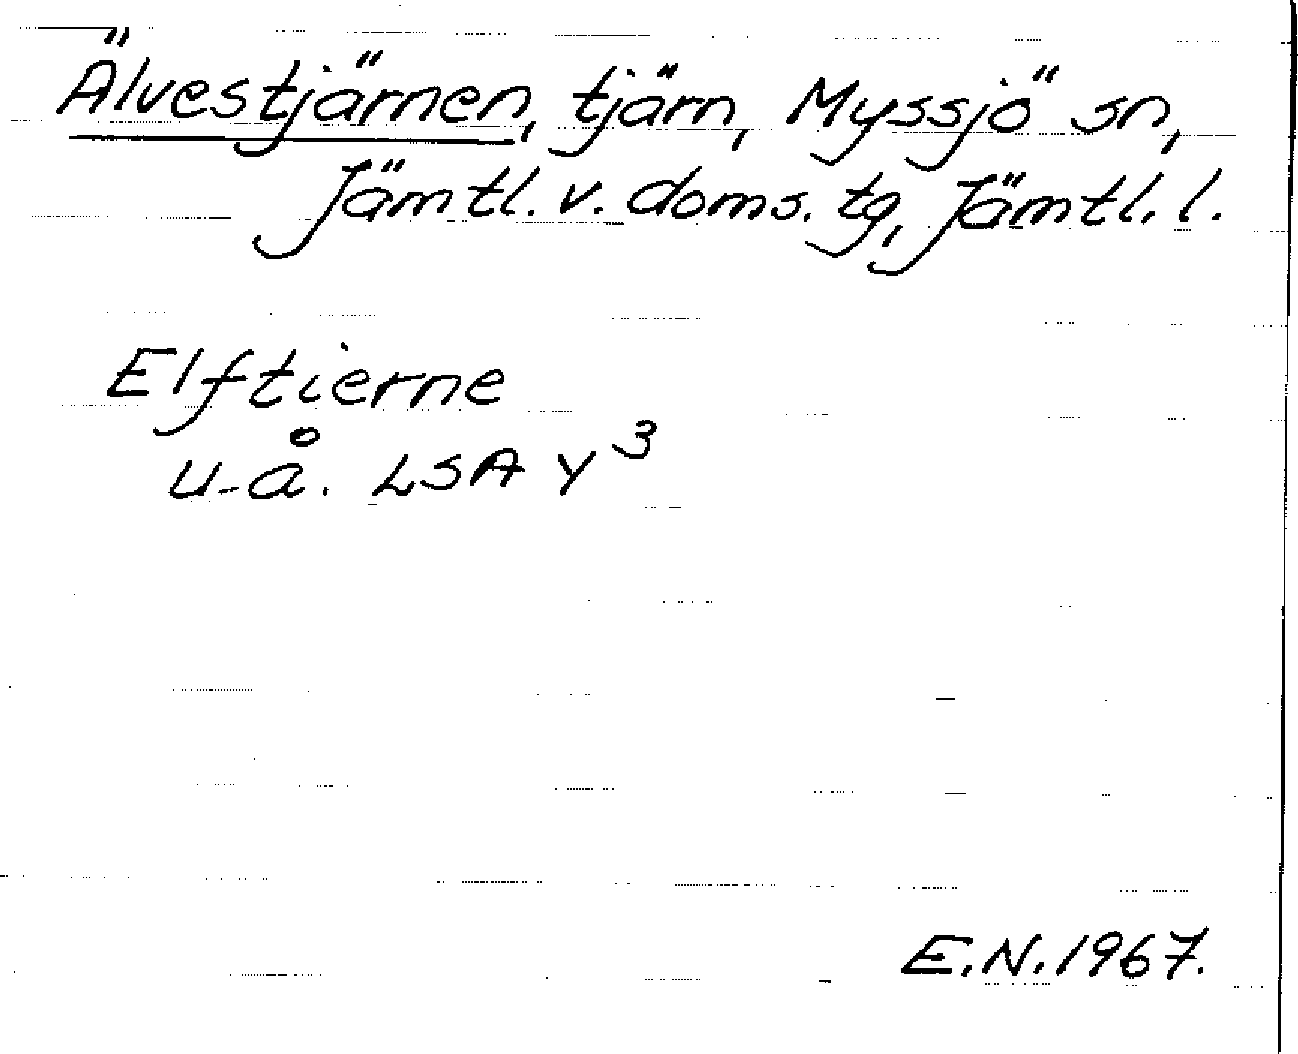 Älvestjärnen, tjärn, Myssjö sn,
Jämtl. v. doms. tg, Jämtl. l.
Elftierne
u. å. LSA Y³
E.N. 1967.